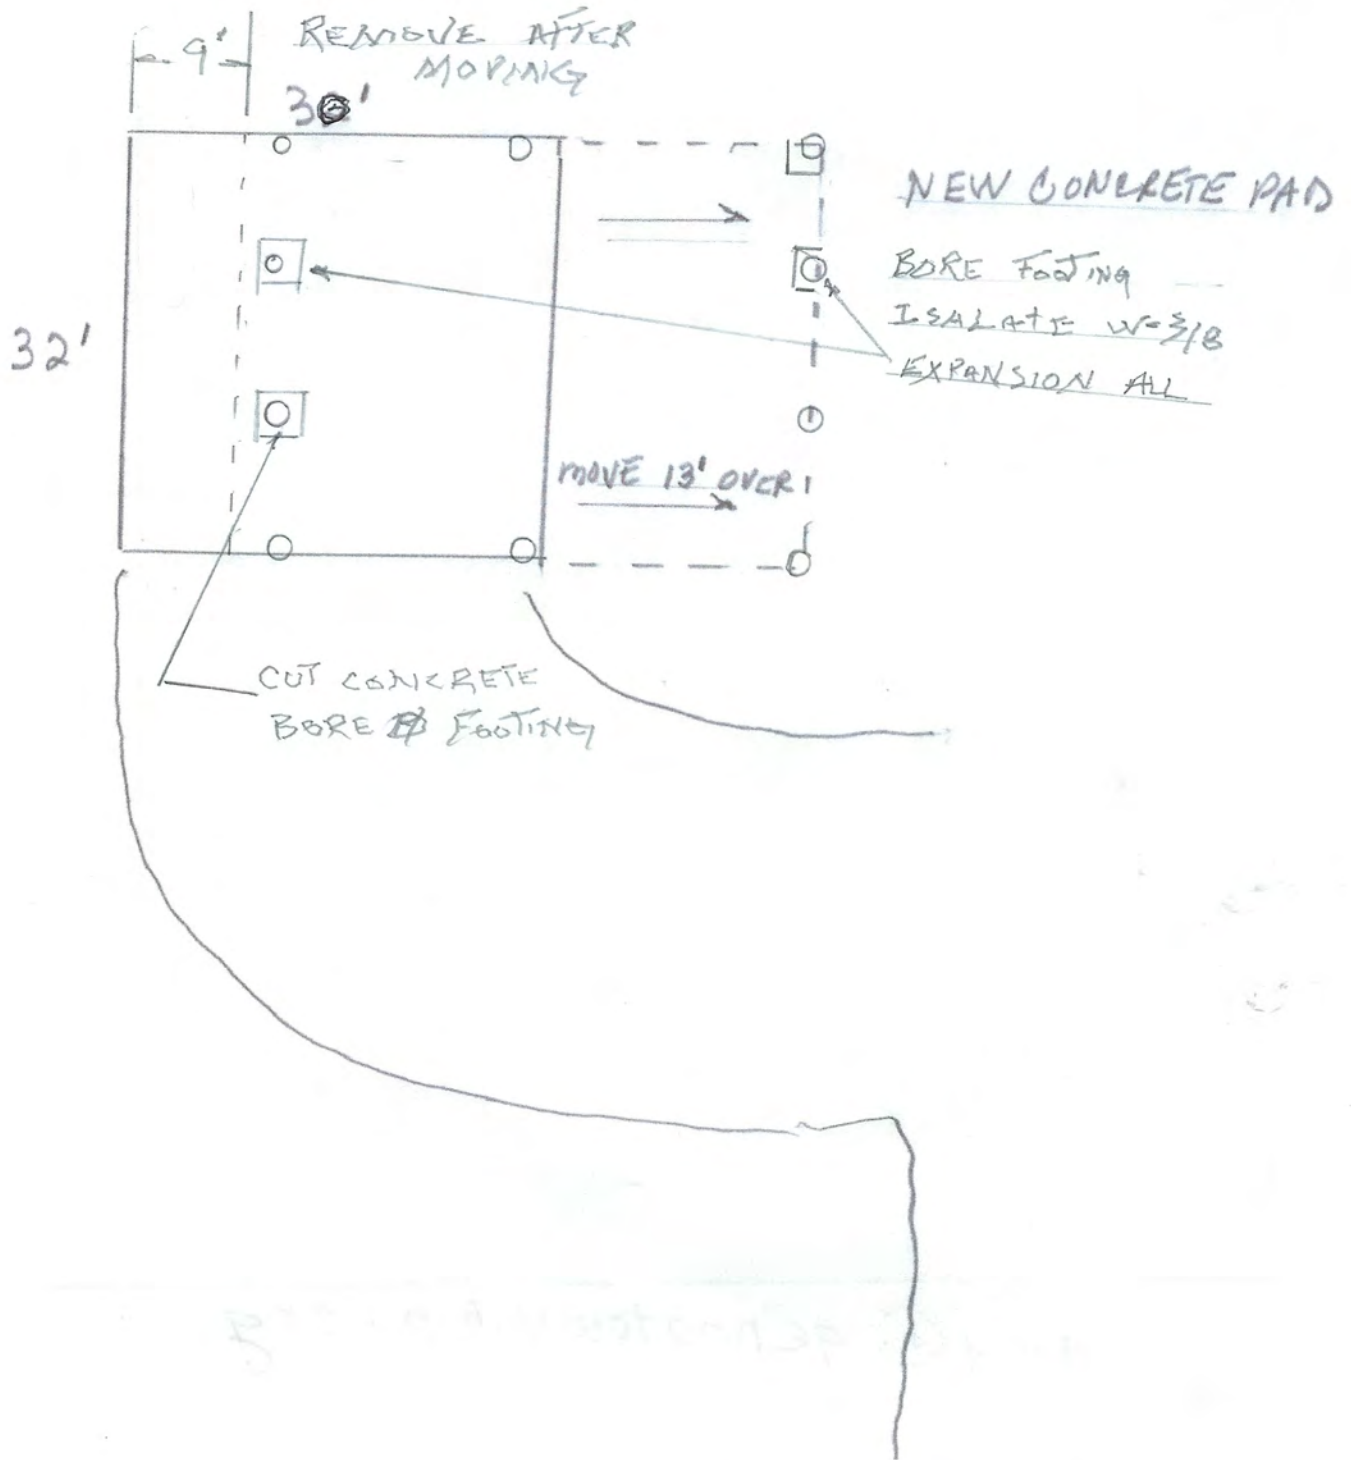 9'
REMOVE AFTER
MOVING
30'
NEW CONCRETE PAD
BORE FOOTING
ISALATE W-3/8
EXPANSION ALL
32'
MOVE 13' OVER
CUT CONCRETE
BORE FOOTING